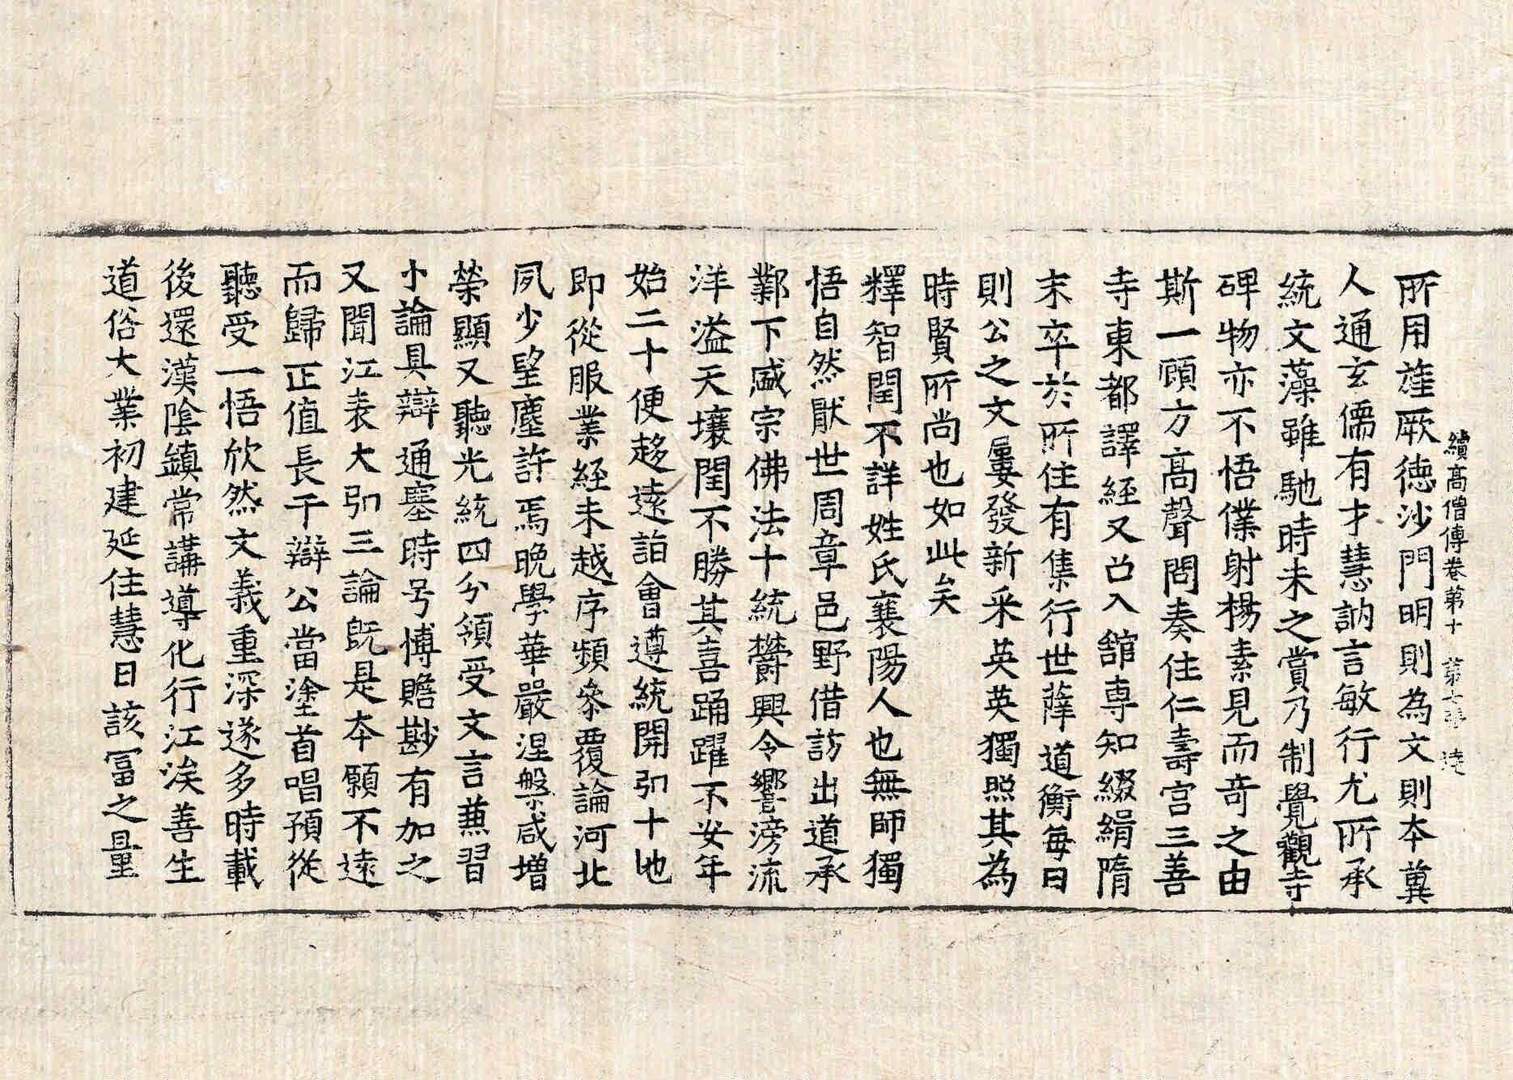 續高僧傳卷第十 第七張 㳺
所用旌厥德沙門明則為文則本冀
人通玄儒有才慧訥言敏行尤所承
統文藻雖馳時未之賞乃制覺觀寺
碑物亦不悟僕射楊素見而奇之由
斯一顧方高聲問奏住仁壽宮三善
寺東都譯經又召入館専知綴緝隋
末卒於所住有集行世薛道衡每曰
則公之文屢發新采英英獨照其為
時賢所尚也如此矣
釋智閏不詳姓氏襄陽人也無師獨
悟自然猒世周章邑野借訪出道承
鄴下盛宗佛法十統欝興令響滂流
洋溢天壤閏不勝其喜踊躍不安年
始二十便趍遠詣會遵統開引十地
即從服業経未越序頻叅覆論河北
夙少望塵許焉晩學華嚴涅槃咸增
榮顯又聽光統四分領受文言𠔥習
小論具辯通塞時号博贍尠有加之
又聞江表大引三論旣是本願不遠
而歸正值長干辯公當塗首唱預從
聽受一悟欣然文義重深遂多時載
後還漢陰鎮常講導化行江涘善生
道俗大業初建延住慧日該冨之量